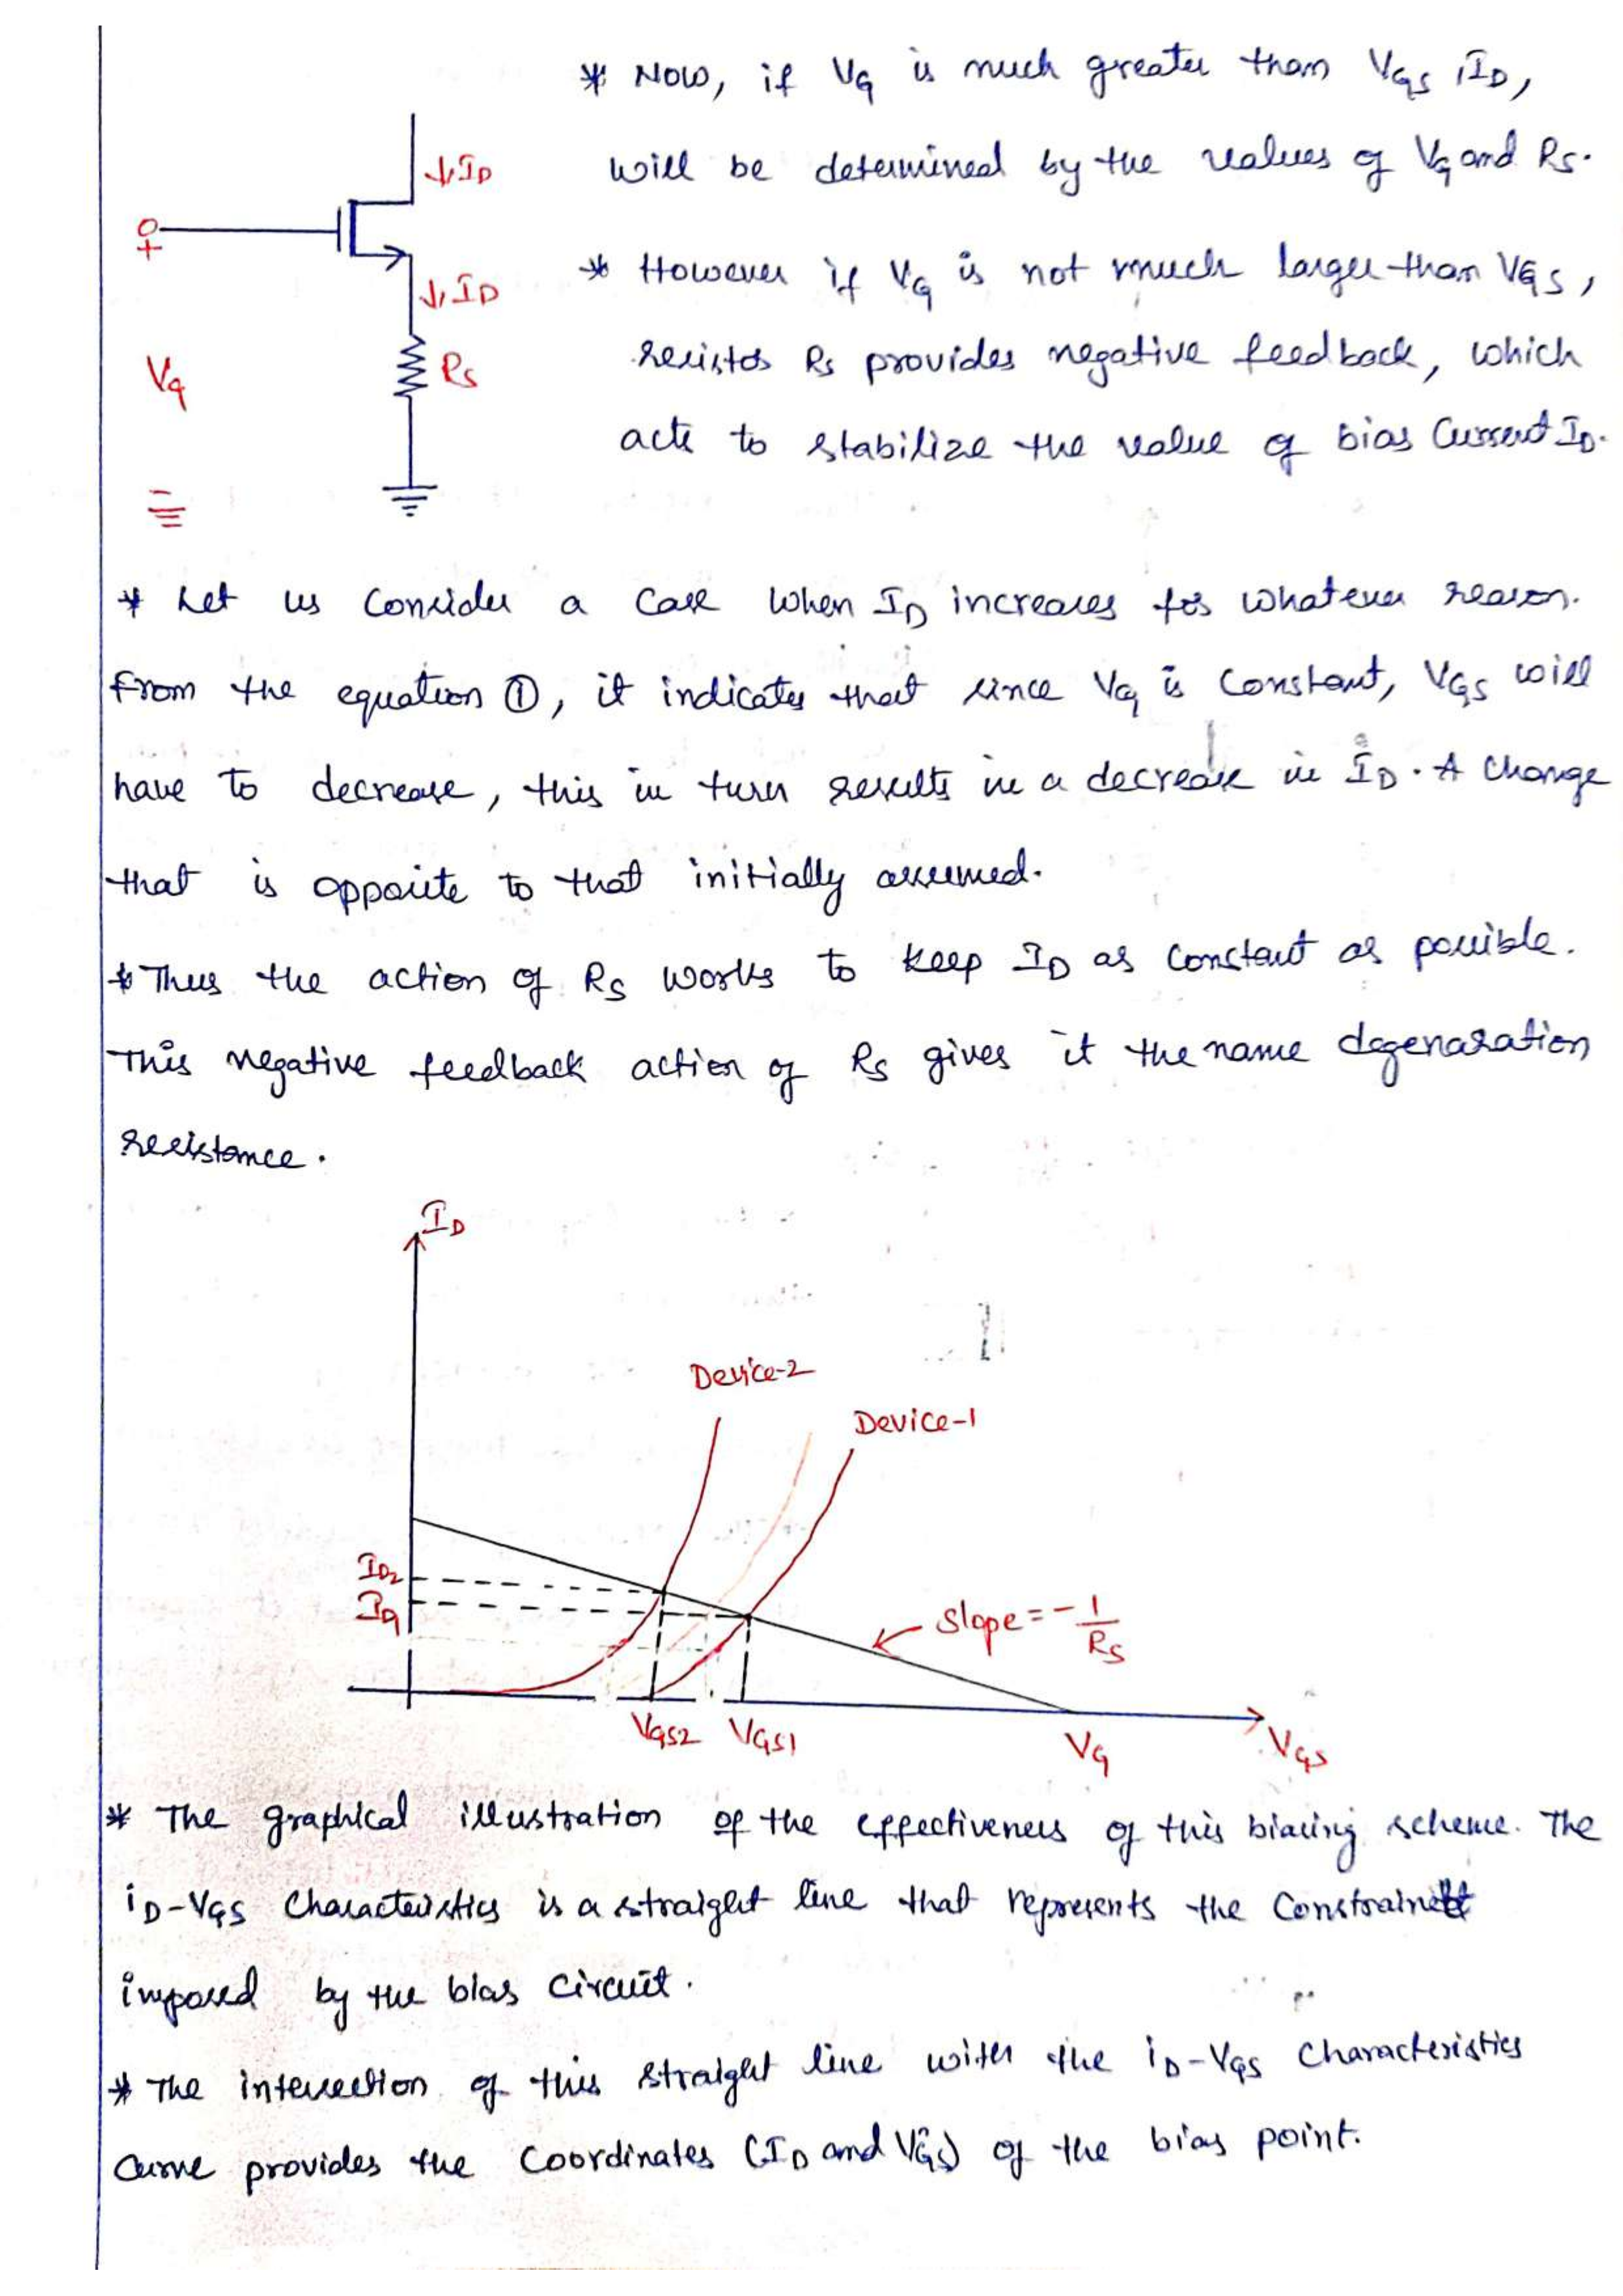 * Now, if VG is much greater than VGS, ID,
will be determined by the values of VG and RS.
* However if VG is not much larger than VGS,
resistor RS provides negative feedback, which
acts to stabilize the value of bias Current ID.
↓ID
+
↓ID
VG
RS
* Let us Consider a Case When ID increases for whatever reason.
From the equation ①, it indicates that since VG is Constant, VGS will
have to decrease, this in turn results in a decrease in ID. A Change
that is opposite to that initially assumed.
* Thus the action of RS works to keep ID as Constant as possible.
This negative feedback action of RS gives it the name degenaration
resistance.
ID
Device-2
Device-1
ID2
Slope = -1/RS
VGS2
VGS1
VG
VGS
* The graphical illustration of the effectiveness of this biasing scheme. The
iD-VGS Characteristics is a straight line that represents the Constraint
imposed by the bias Circuit.
* The intersection of this straight line with the iD-VGS Characteristics
Curve provides the Coordinates (ID and VGS) of the bias point.